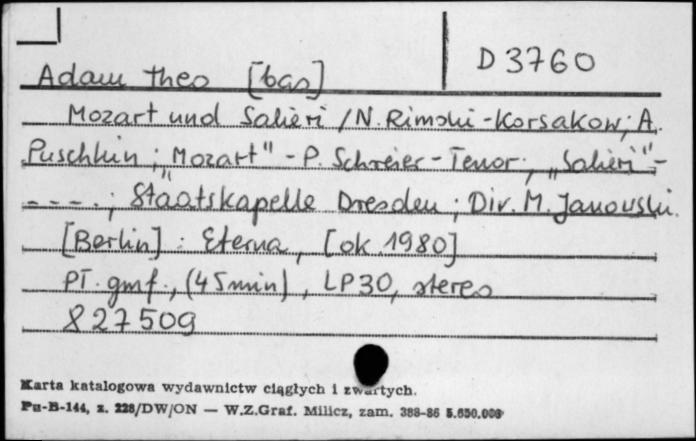 D 3760
Adam Theo [bas]
Mozart und Salieri / N. Rimski-Korsakow; A.
Puschkin; „Mozart" - P. Schreier - Tenor; „Salieri" -
- - - - ; Staatskapelle Dresden; Dir. M. Janowski.
[Berlin] : Eterna, [ok. 1980]
Pł. gmf., (45min), LP30, stereo
827509
Karta katalogowa wydawnictw ciągłych i zwartych.
Pu-B-144, z. 228/DW/ON — W.Z.Graf. Milicz, zam. 388-86 5.650.000